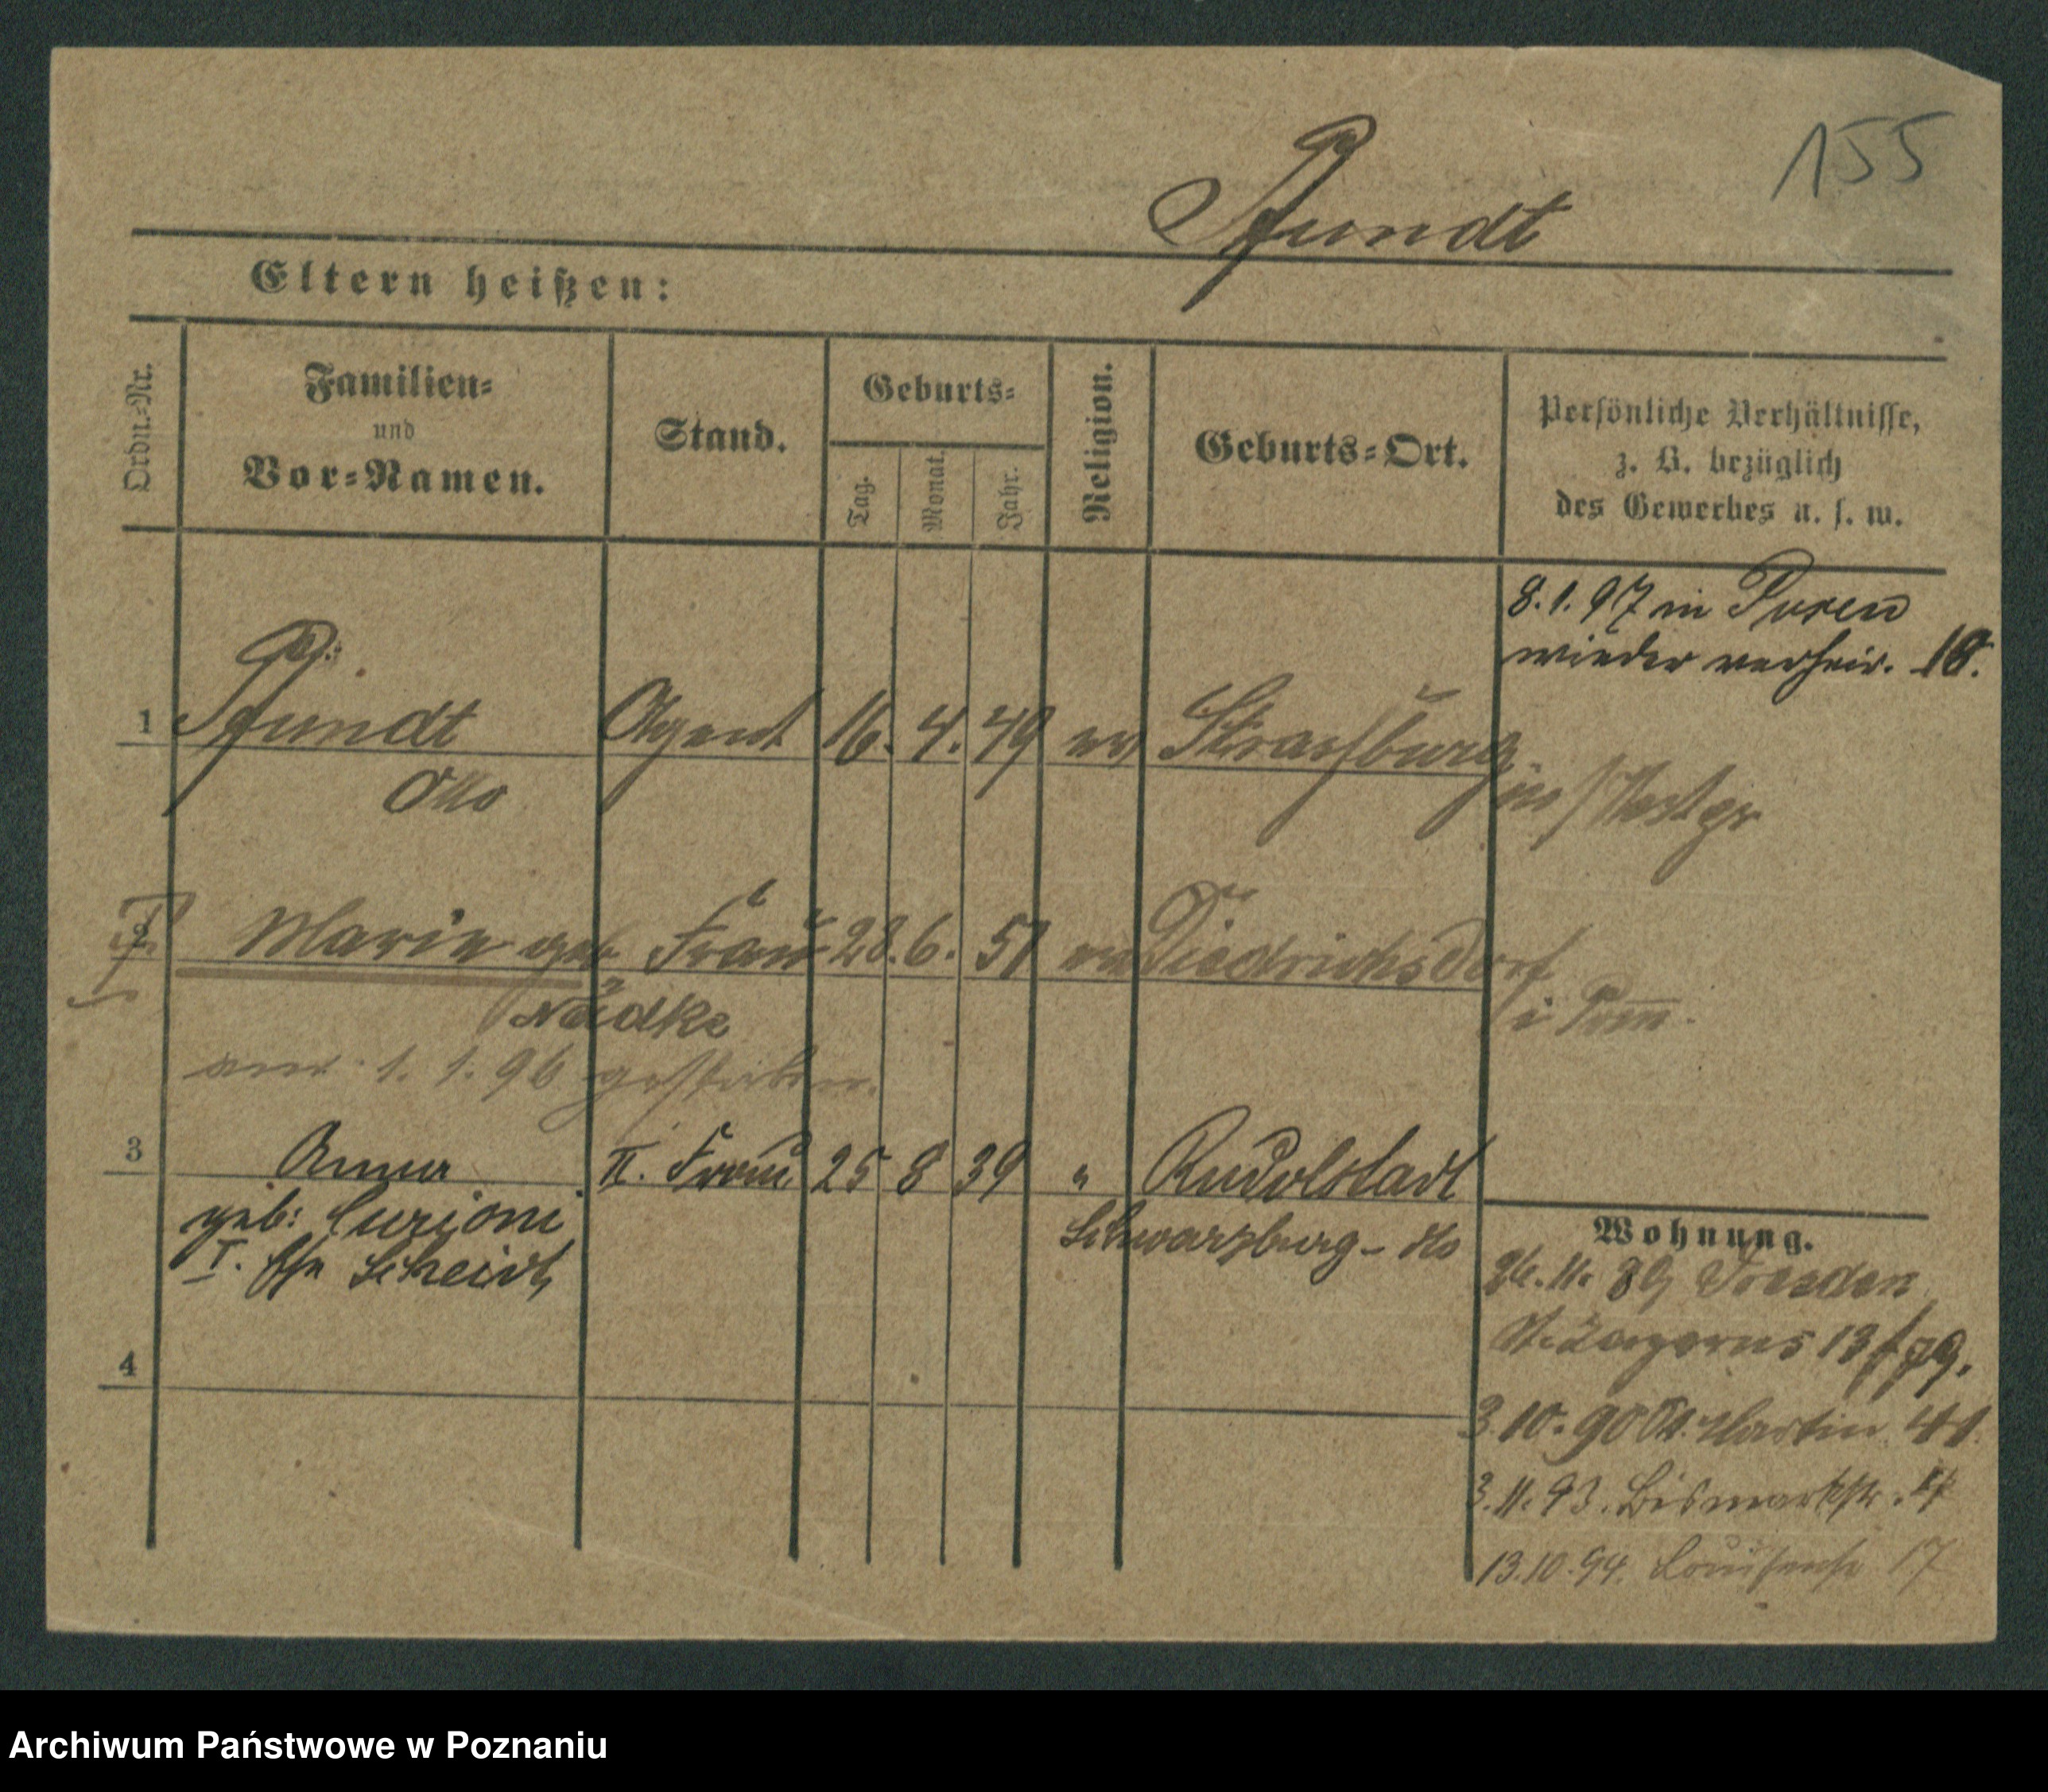 155
Pfundt
Eltern heißen:
Ordn.-Nr.
Familien-
und
Vor-Namen.
Stand.
Geburts-
Tag.
Monat.
Jahr.
Religion.
Geburts-Ort.
Persönliche Verhältnisse,
z. B. bezüglich
des Gewerbes u. s. w.
8.1.97 in Posen
wieder verheir.
1 Pfundt Agent 16. 4. 49 ev Strassburg
Otto in Westpr
2 Marie geb Frau 28. 6. 51 ev Diedrichsdorf
Nadke i Pom.
am 1. 1. 96 gestorben.
3 Anna II. Frau 25 8 39 " Rudolstadt
geb: Curioni Schwarzburg-
I. Ehe Scheidt
Wohnung.
26.11. 89 Dresden
St. Lazarus 13
4
3 10. 90 St. Martin 41
3.11.93. Bismarckstr.
13.10.94. Louisenstr 17
Archiwum Państwowe w Poznaniu